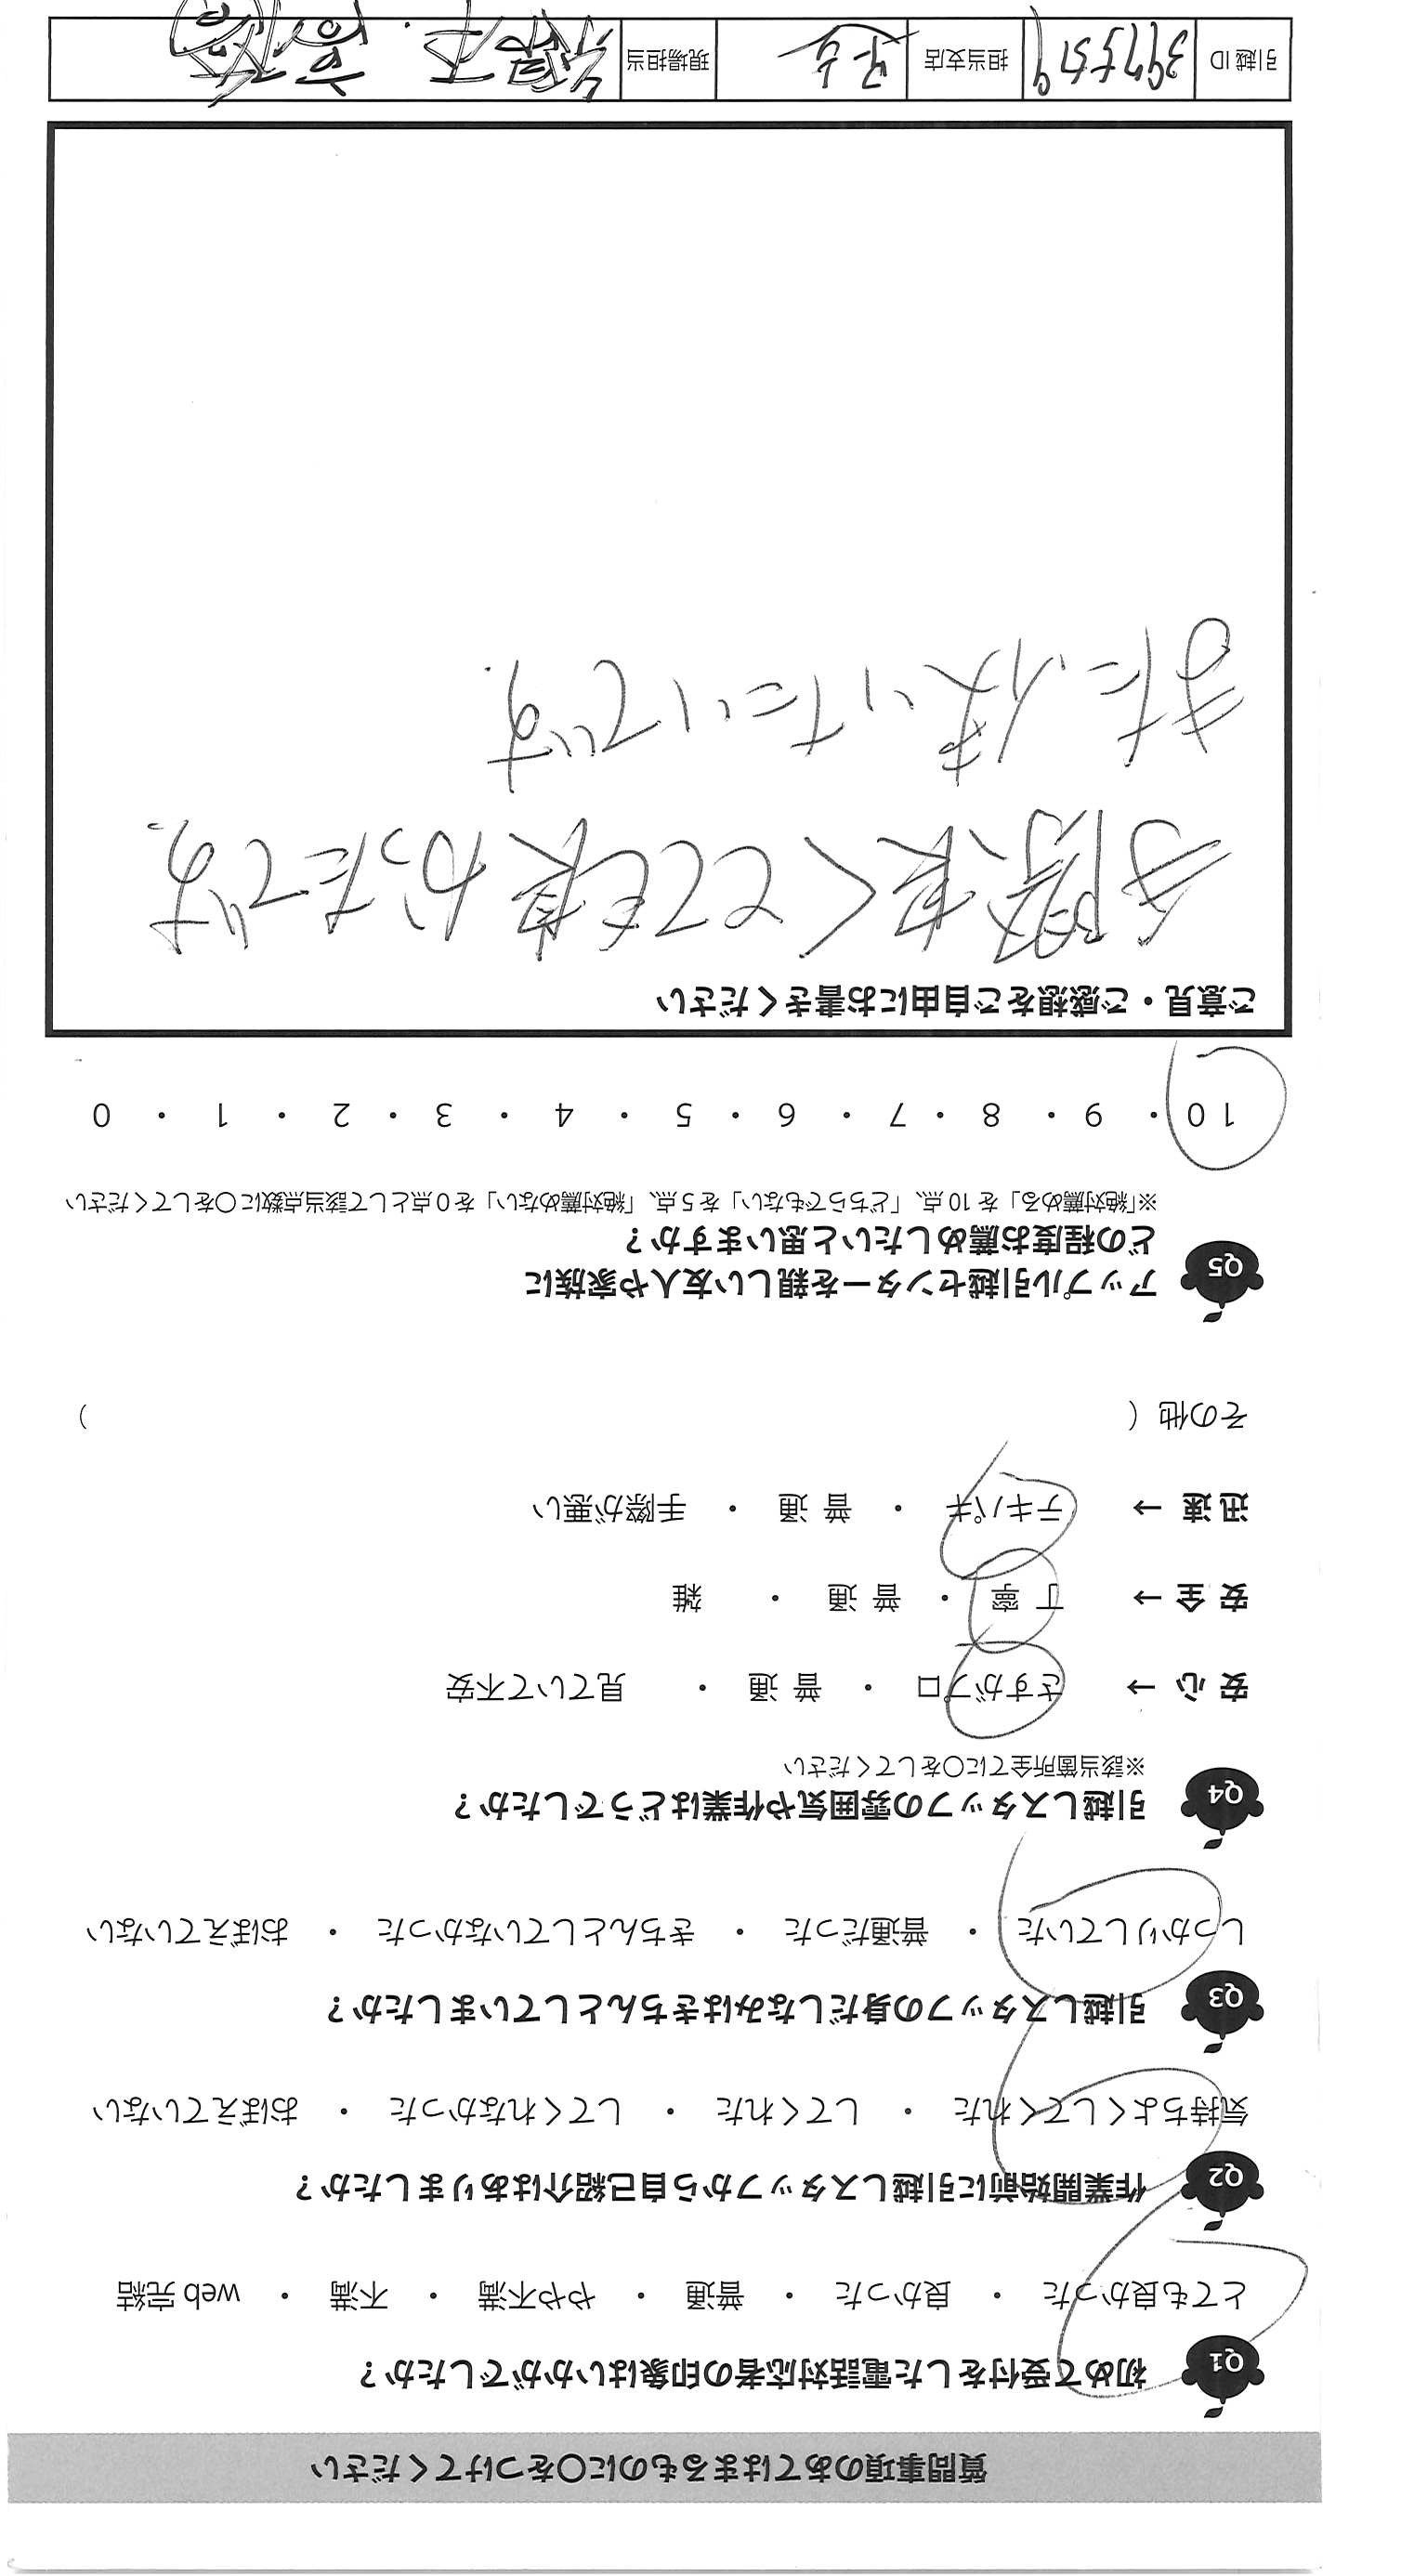 質問事項のあてはまるものに〇をつけてください
Q1 初めて受付をした電話対応者の印象はいかがでしたか？
とても良かった ・ 良かった ・ 普通 ・ やや不満 ・ 不満 ・ web完結
Q2 作業開始前に引越しスタッフから自己紹介はありましたか？
気持ちよくしてくれた ・ してくれた ・ してくれなかった ・ おぼえていない
Q3 引越しスタッフの身だしなみはきちんとしていましたか？
しっかりしていた ・ 普通だった ・ きちんとしていなかった ・ おぼえていない
Q4 引越しスタッフの雰囲気や作業はどうでしたか？
※該当箇所全てに〇をしてください
安心 → さすがプロ ・ 普通 ・ 見ていて不安
安全 → 丁寧 ・ 普通 ・ 雑
迅速 → テキパキ ・ 普通 ・ 手際が悪い
その他（ ）
Q5 アップル引越センターを親しい友人や家族に
どの程度お薦めしたいと思いますか？
※「絶対薦める」を10点、「どちらでもない」を5点、「絶対薦めない」を0点として該当点数に〇をしてください
10 ・ 9 ・ 8 ・ 7 ・ 6 ・ 5 ・ 4 ・ 3 ・ 2 ・ 1 ・ 0
ご意見・ご感想をご自由にお書きください
手際良くとても良かったです。
また使いたいです。
引越ID 担当支店 現場担当